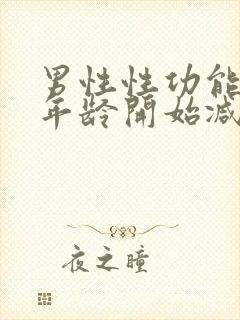 男性性功能
年龄開始减
夜之瞳